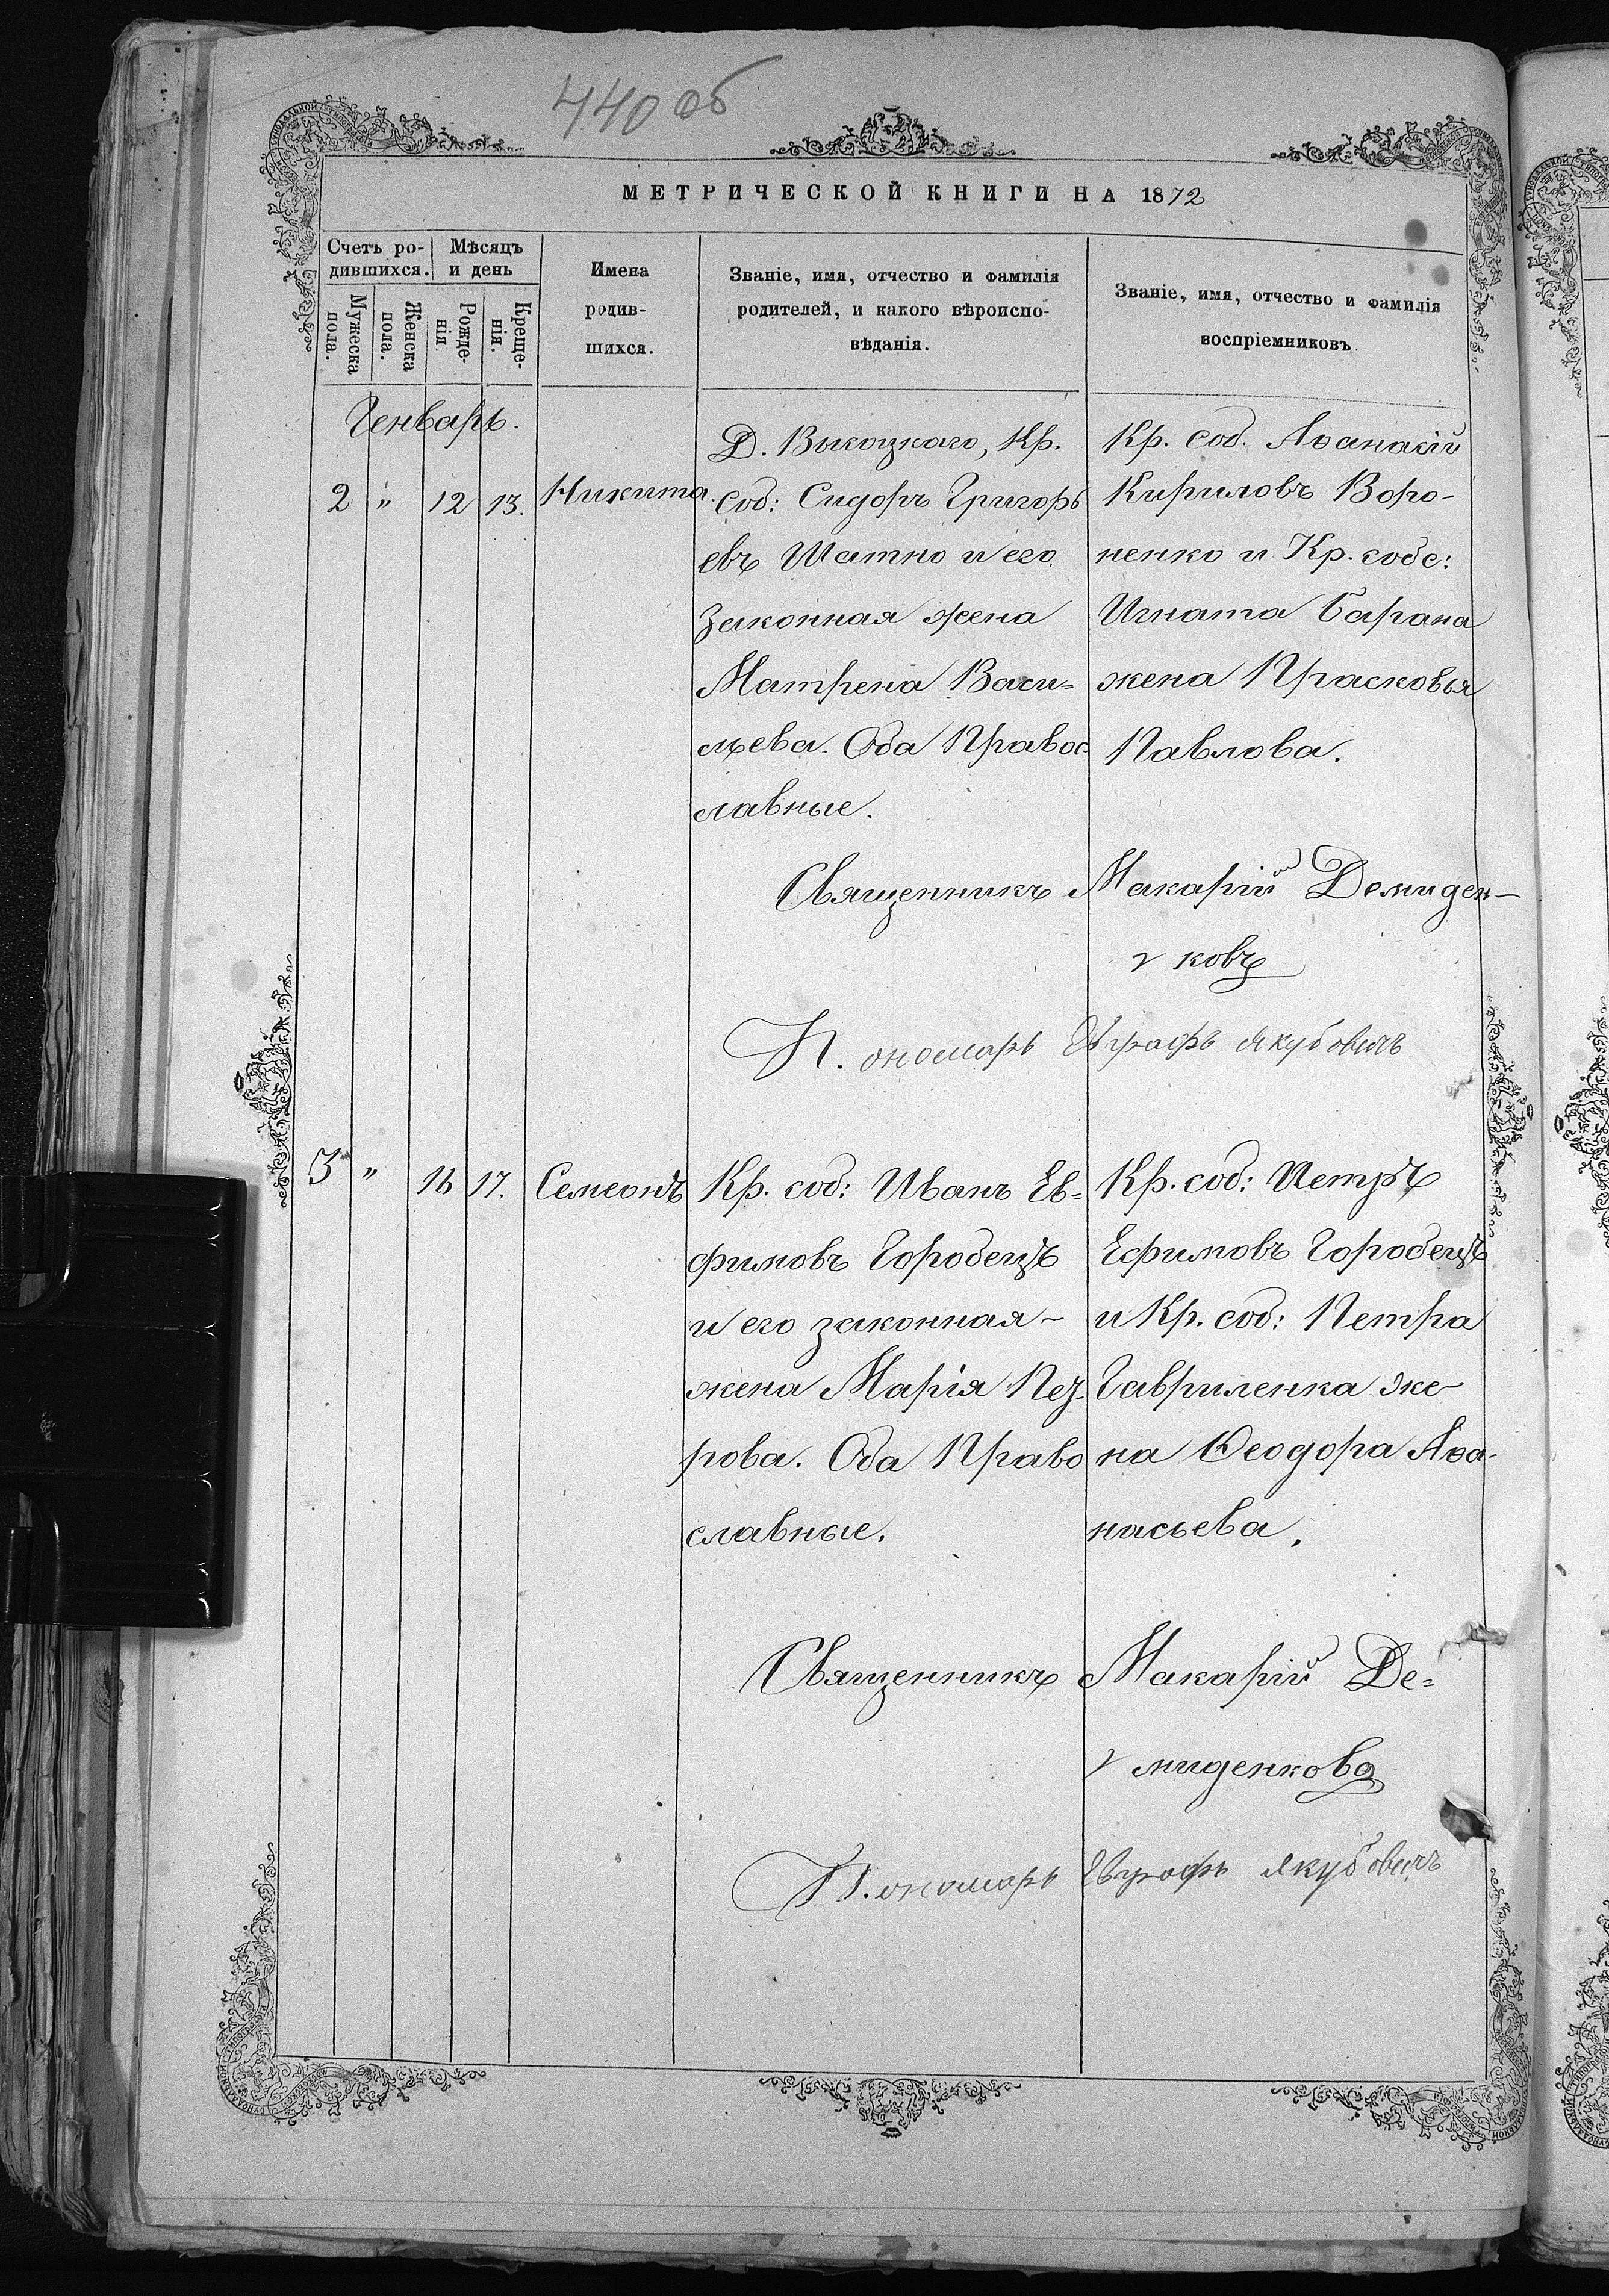 440 об
МЕТРИЧЕСКОЙ КНИГИ НА 1872
Счетъ ро-
дившихся.
Мѣсяцъ
и день
Мужеска
пола.
Женска
пола.
Рожде-
нія.
Креще-
нія.
Имена
родив-
шихся.
Званіе, имя, отчество и фамилія
родителей, и какого вѣроиспо-
вѣданія.
Званіе, имя, отчество и фамилія
воспріемниковъ
Генварь.
2 " 12 13. Никита.
Д. Высоцкаго, Кр.
соб: Сидоръ Григорь
евъ Шатно и его
законная жена
Матрена Васи=
льева. Оба Правос
лавные.
Кр. соб. Аѳанасій
Кириловъ Воро-
ненко и Кр. собс:
Игната Барана
жена Прасковья
Павлова.
Священникъ Макарій Демиден-
ковъ
П. ономарь Евграфъ Якубовичъ
3 " 16 17. Семеонъ
Кр. соб: Иванъ Ев=
фимовъ Городецъ
и его законная-
жена Марія Пет-
рова. Оба Право
славные.
Кр. соб: Петръ
Ефимовъ Городецъ
и Кр. соб: Петра
Гавриленка же-
на Ѳеодора Аѳа-
насьева.
Священникъ Макарій Де=
миденковъ
П. ономарь Евграфъ Якубовичъ